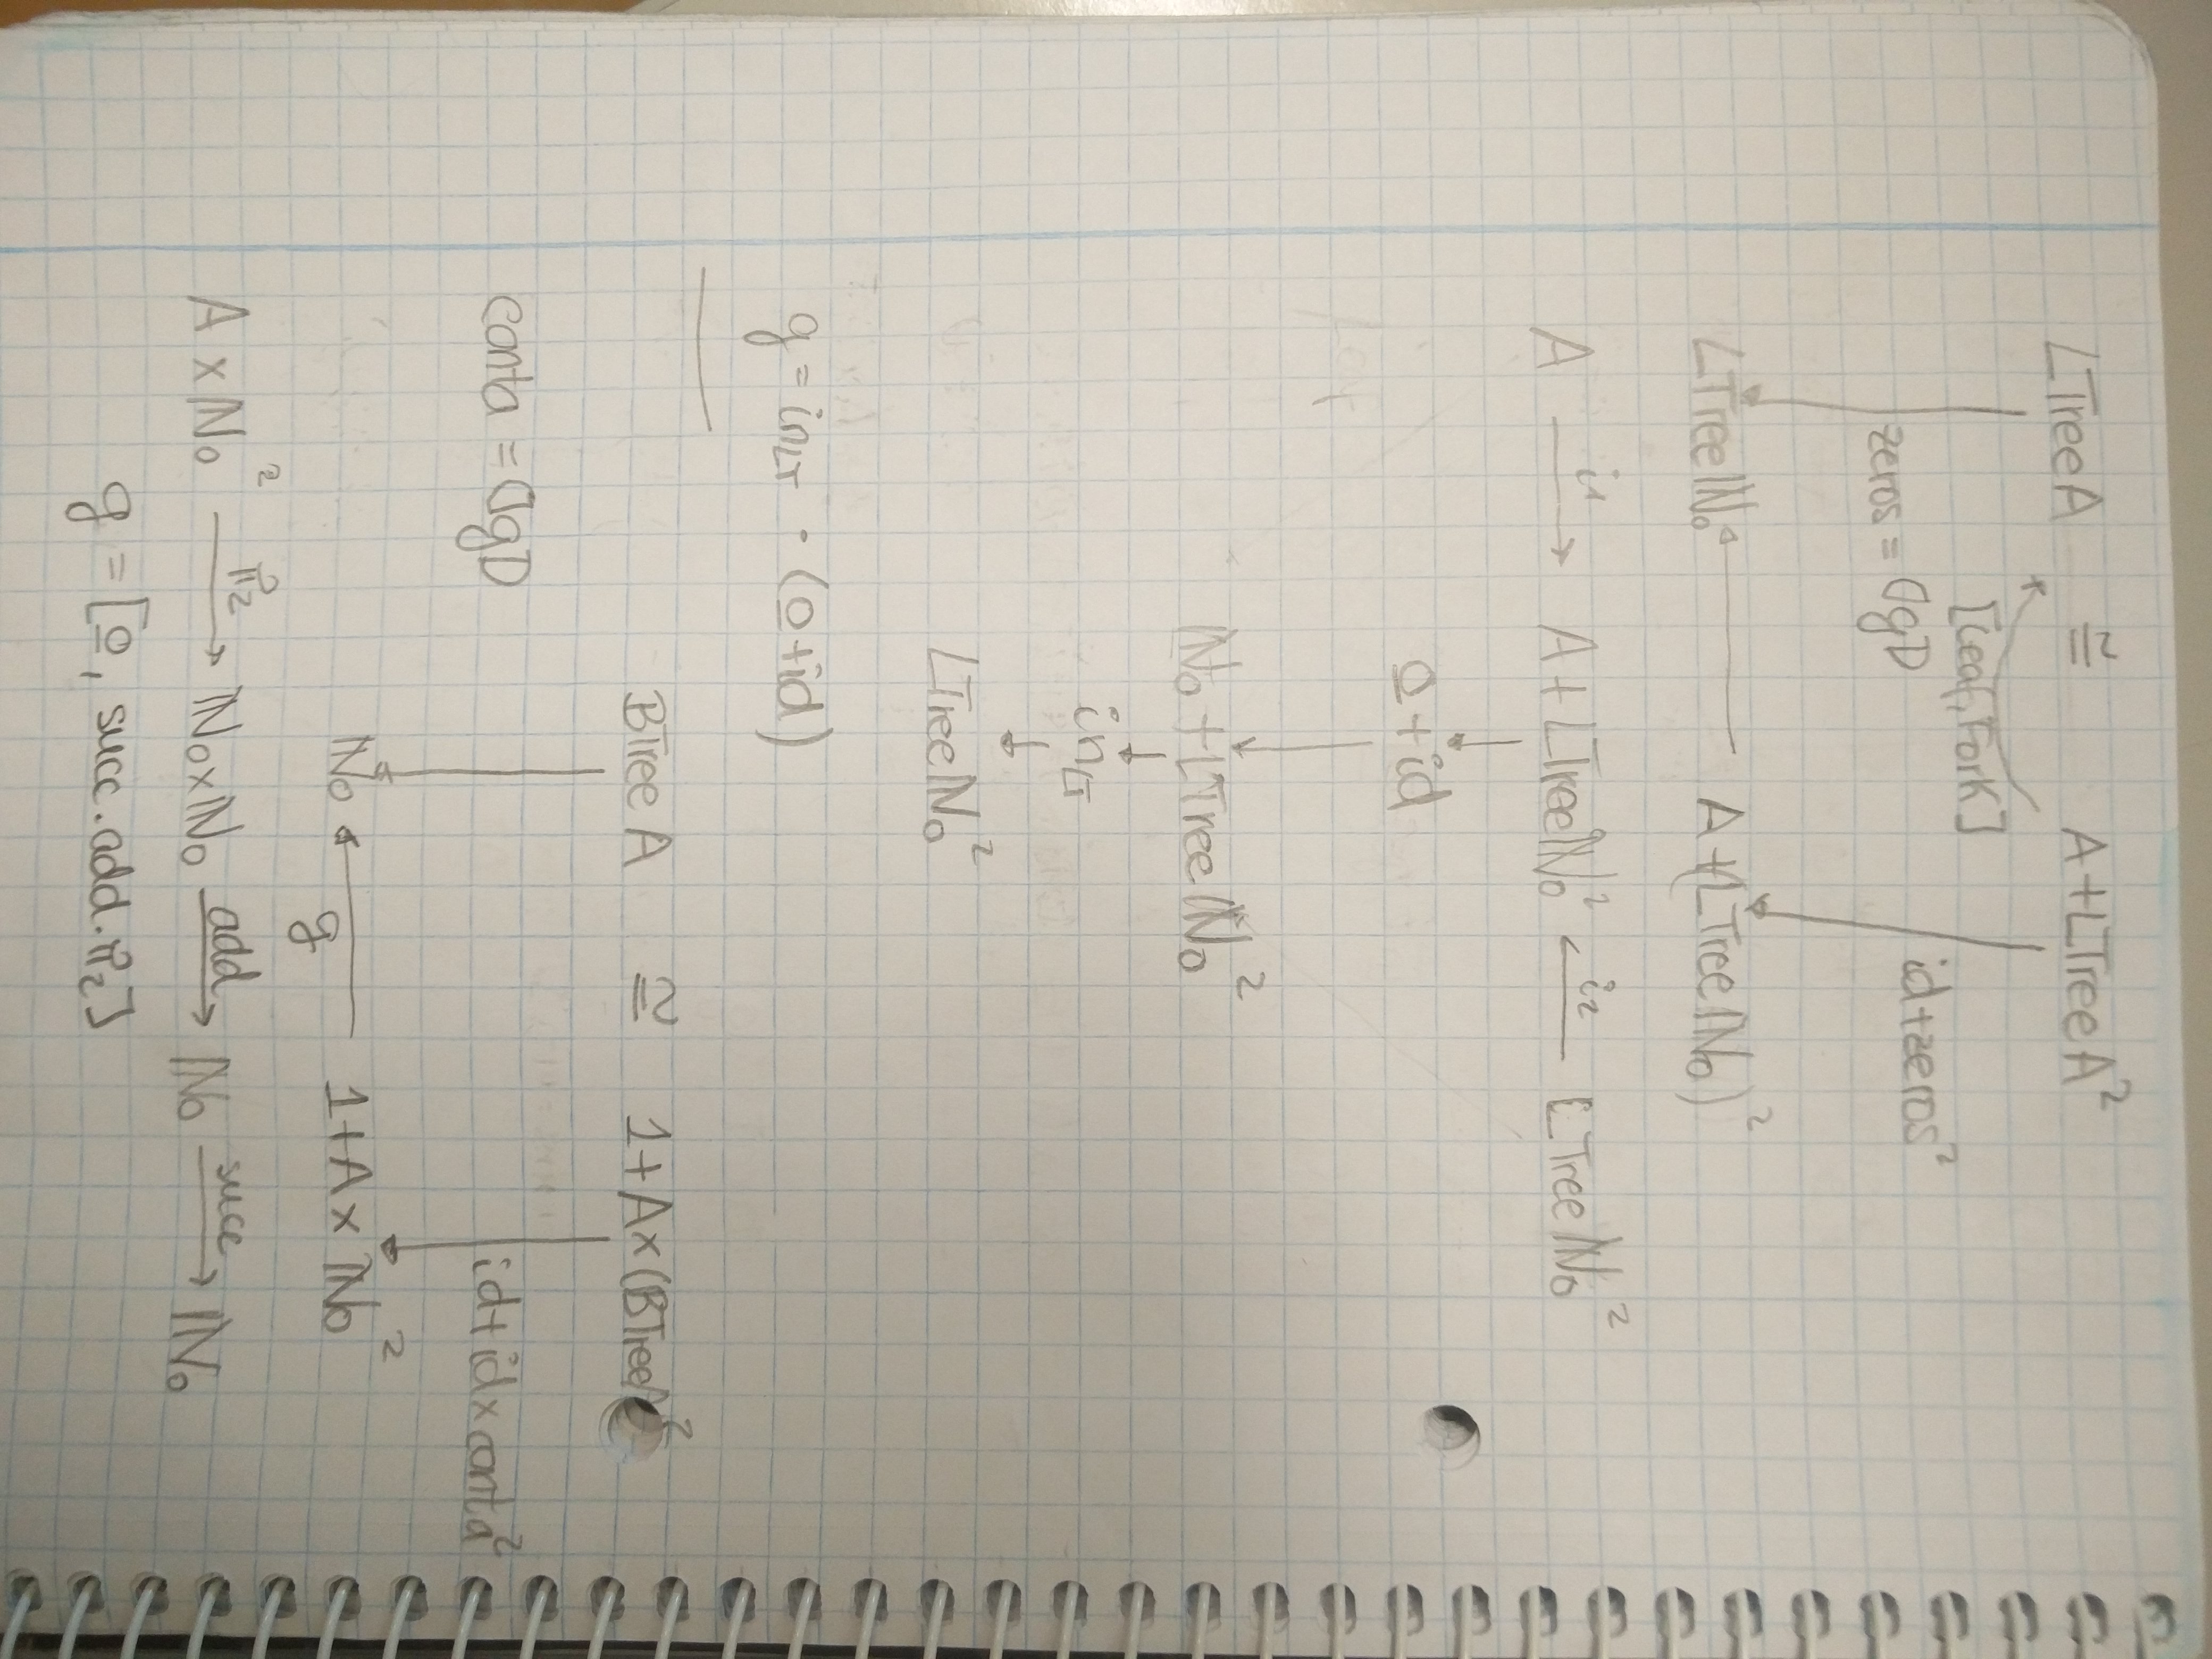 LTree A ≅ A+LTree A²
[Leaf, Fork]
zeros = ⦇g⦈ id+zeros²
LTree ℕ₀ A+(LTree ℕ₀)²
A i₁ A+LTree ℕ₀² i₂ LTree ℕ₀²
0̲+id
ℕ₀+LTree ℕ₀²
in_LT
LTree ℕ₀²
g = in_LT · (0̲+id)
BTree A ≅ 1+A×(BTree A)²
conta = ⦇g⦈ id+id×conta²
ℕ₀ g 1+A×ℕ₀²
A×ℕ₀² π₂ ℕ₀×ℕ₀ add ℕ₀ succ ℕ₀
g = [0̲, succ.add.π₂]